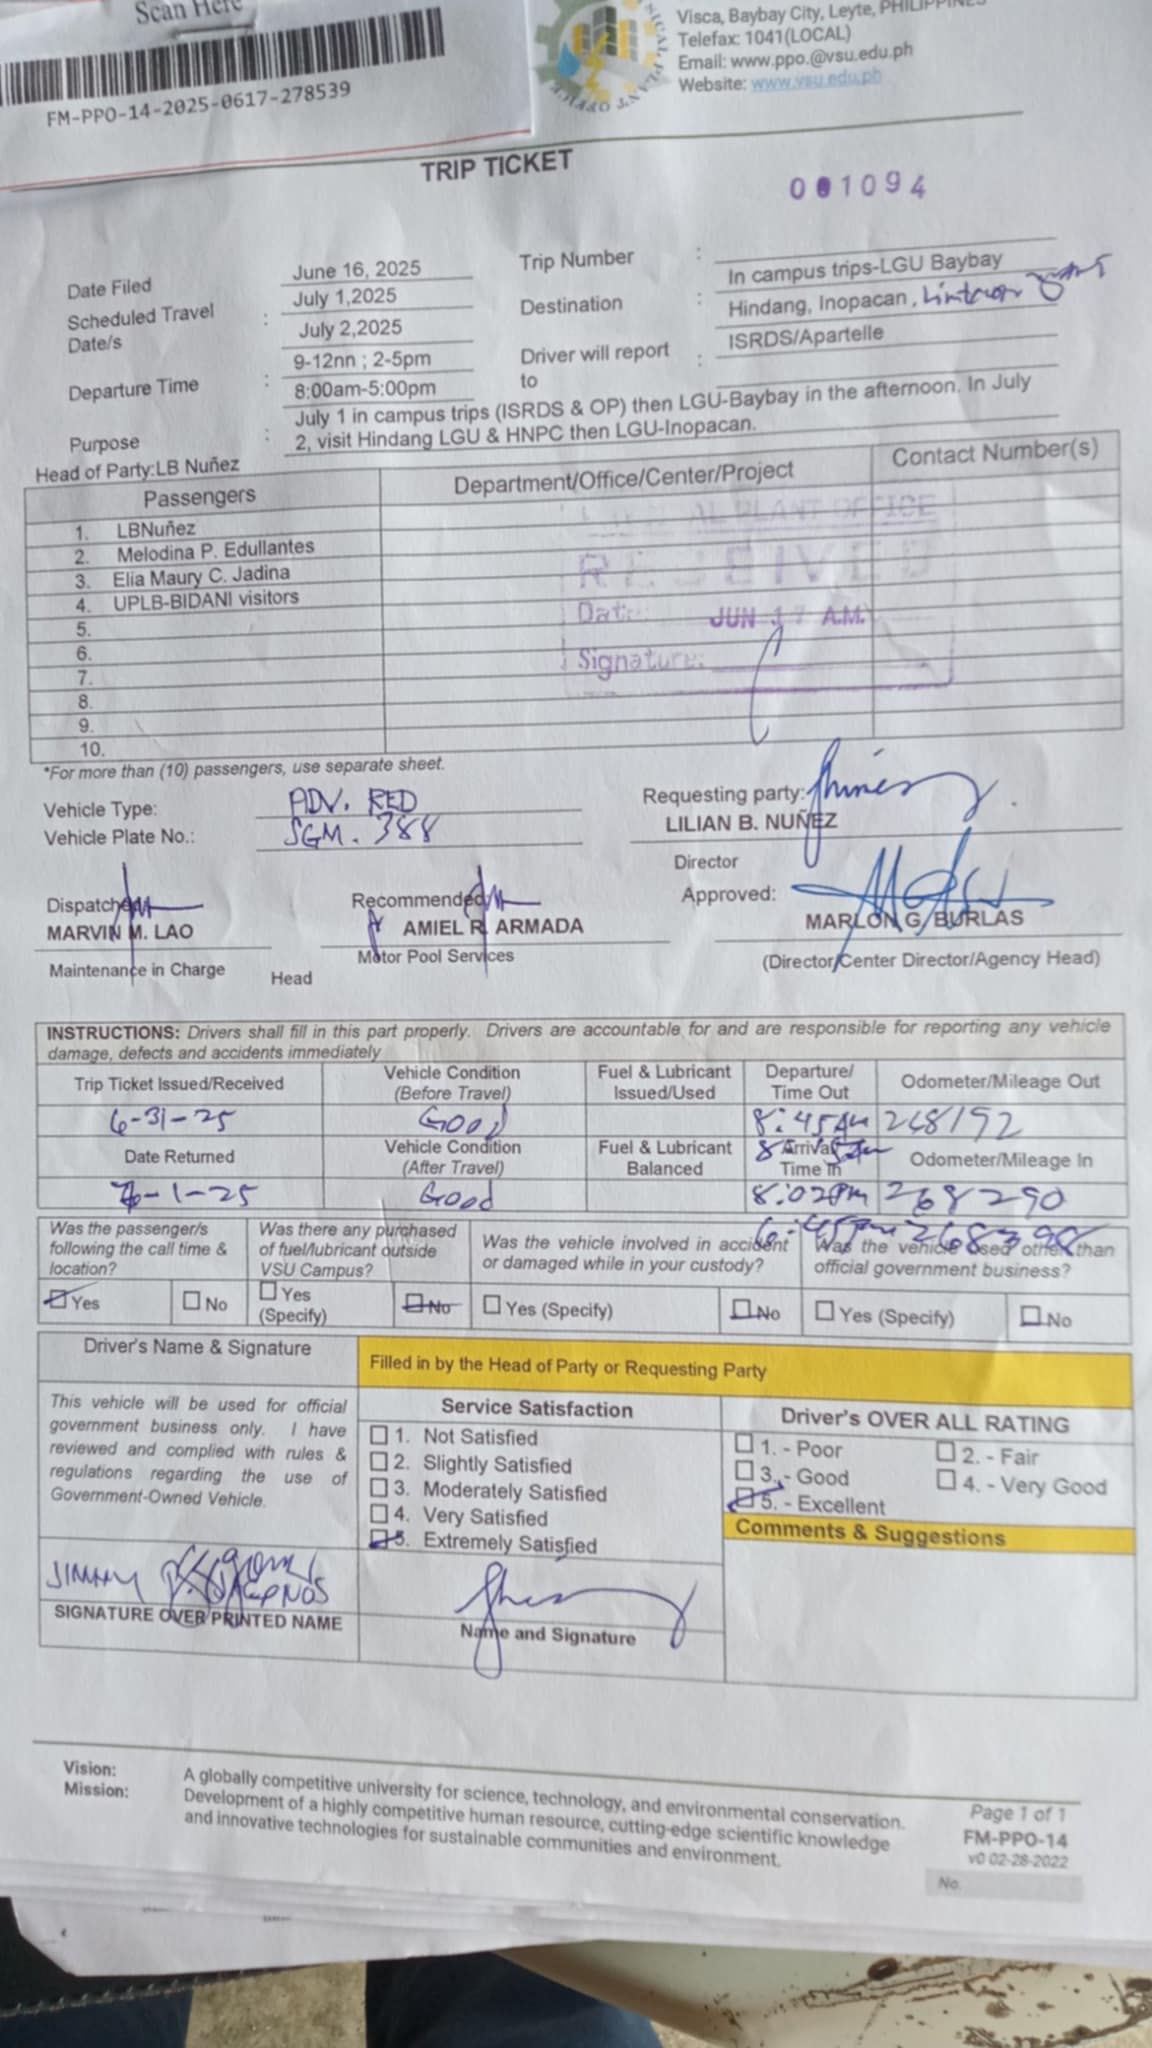 Scan Here
FM-PPO-14-2025-0617-278539
Visca, Baybay City, Leyte, PHILIPPINES
Telefax: 1041(LOCAL)
Email: www.ppo.@vsu.edu.ph
Website: www.vsu.edu.ph
TRIP TICKET
001094
Date Filed
June 16, 2025
Trip Number :
Scheduled Travel Date/s :
July 1,2025
July 2,2025
Destination :
In campus trips-LGU Baybay
Hindang, Inopacan,
Departure Time :
9-12nn ; 2-5pm
8:00am-5:00pm
Driver will report to :
ISRDS/Apartelle
Purpose :
July 1 in campus trips (ISRDS & OP) then LGU-Baybay in the afternoon. In July
2, visit Hindang LGU & HNPC then LGU-Inopacan.
Head of Party:LB Nuñez
Passengers Department/Office/Center/Project Contact Number(s)
1. LBNuñez
2. Melodina P. Edullantes
3. Elia Maury C. Jadina
4. UPLB-BIDANI visitors
5.
6.
7.
8.
9.
10.
PLANT OFFICE
RECEIVED
Date: JUN 17 A.M.
Signature:
*For more than (10) passengers, use separate sheet.
Vehicle Type: ADV. RED
Vehicle Plate No.: SGM. 388
Requesting party:
LILIAN B. NUÑEZ
Director
Dispatched
MARVIN M. LAO
Maintenance in Charge
Recommended
AMIEL R. ARMADA
Head Motor Pool Services
Approved:
MARLON G. BURLAS
(Director/Center Director/Agency Head)
INSTRUCTIONS: Drivers shall fill in this part properly. Drivers are accountable for and are responsible for reporting any vehicle
damage, defects and accidents immediately
Trip Ticket Issued/Received
Vehicle Condition
(Before Travel)
Fuel & Lubricant
Issued/Used
Departure/
Time Out
Odometer/Mileage Out
6-31-25 Good 8:45Am 268192
Date Returned
Vehicle Condition
(After Travel)
Fuel & Lubricant
Balanced
Arrival
Time In
Odometer/Mileage In
7-1-25 Good 8:02pm 268290
268398
Was the passenger/s
following the call time &
location?
Was there any purchased
of fuel/lubricant outside
VSU Campus?
Was the vehicle involved in accident
or damaged while in your custody?
Was the vehicle used other than
official government business?
Yes No Yes (Specify) No Yes (Specify) No Yes (Specify) No
Driver's Name & Signature
Filled in by the Head of Party or Requesting Party
This vehicle will be used for official
government business only. I have
reviewed and complied with rules &
regulations regarding the use of
Government-Owned Vehicle.
Service Satisfaction
1. Not Satisfied
2. Slightly Satisfied
3. Moderately Satisfied
4. Very Satisfied
5. Extremely Satisfied
Driver's OVER ALL RATING
1. - Poor 2. - Fair
3. - Good 4. - Very Good
5. - Excellent
Comments & Suggestions
JIMMY
SIGNATURE OVER PRINTED NAME
Name and Signature
Vision: A globally competitive university for science, technology, and environmental conservation.
Mission: Development of a highly competitive human resource, cutting-edge scientific knowledge
and innovative technologies for sustainable communities and environment.
Page 1 of 1
FM-PPO-14
v0 02-28-2022
No.